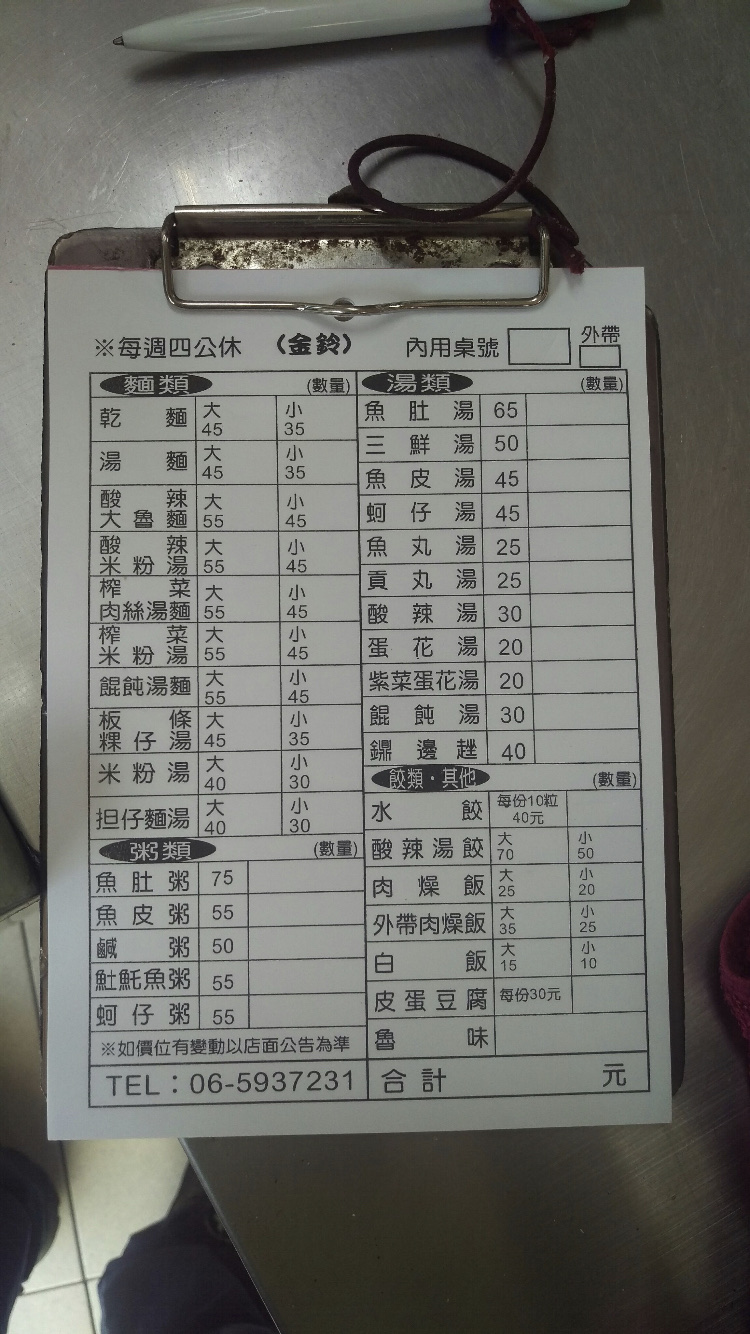 ※每週四公休 (金鈴) 內用桌號 外帶
麵類 (數量)
乾麵 大45 小35
湯麵 大45 小35
酸辣大魯麵 大55 小45
酸辣米粉湯 大55 小45
榨菜肉絲湯麵 大55 小45
榨菜米粉湯 大55 小45
餛飩湯麵 大55 小45
板條粿仔湯 大45 小35
米粉湯 大40 小30
担仔麵湯 大40 小30
粥類 (數量)
魚肚粥 75
魚皮粥 55
鹹粥 50
虱魠魚粥 55
蚵仔粥 55
※如價位有變動以店面公告為準
TEL：06-5937231
湯類 (數量)
魚肚湯 65
三鮮湯 50
魚皮湯 45
蚵仔湯 45
魚丸湯 25
貢丸湯 25
酸辣湯 30
蛋花湯 20
紫菜蛋花湯 20
餛飩湯 30
鼎邊趖 40
餃類·其他 (數量)
水餃 每份10粒40元
酸辣湯餃 大70 小50
肉燥飯 大25 小20
外帶肉燥飯 大35 小25
白飯 大15 小10
皮蛋豆腐 每份30元
魯味
合計 元